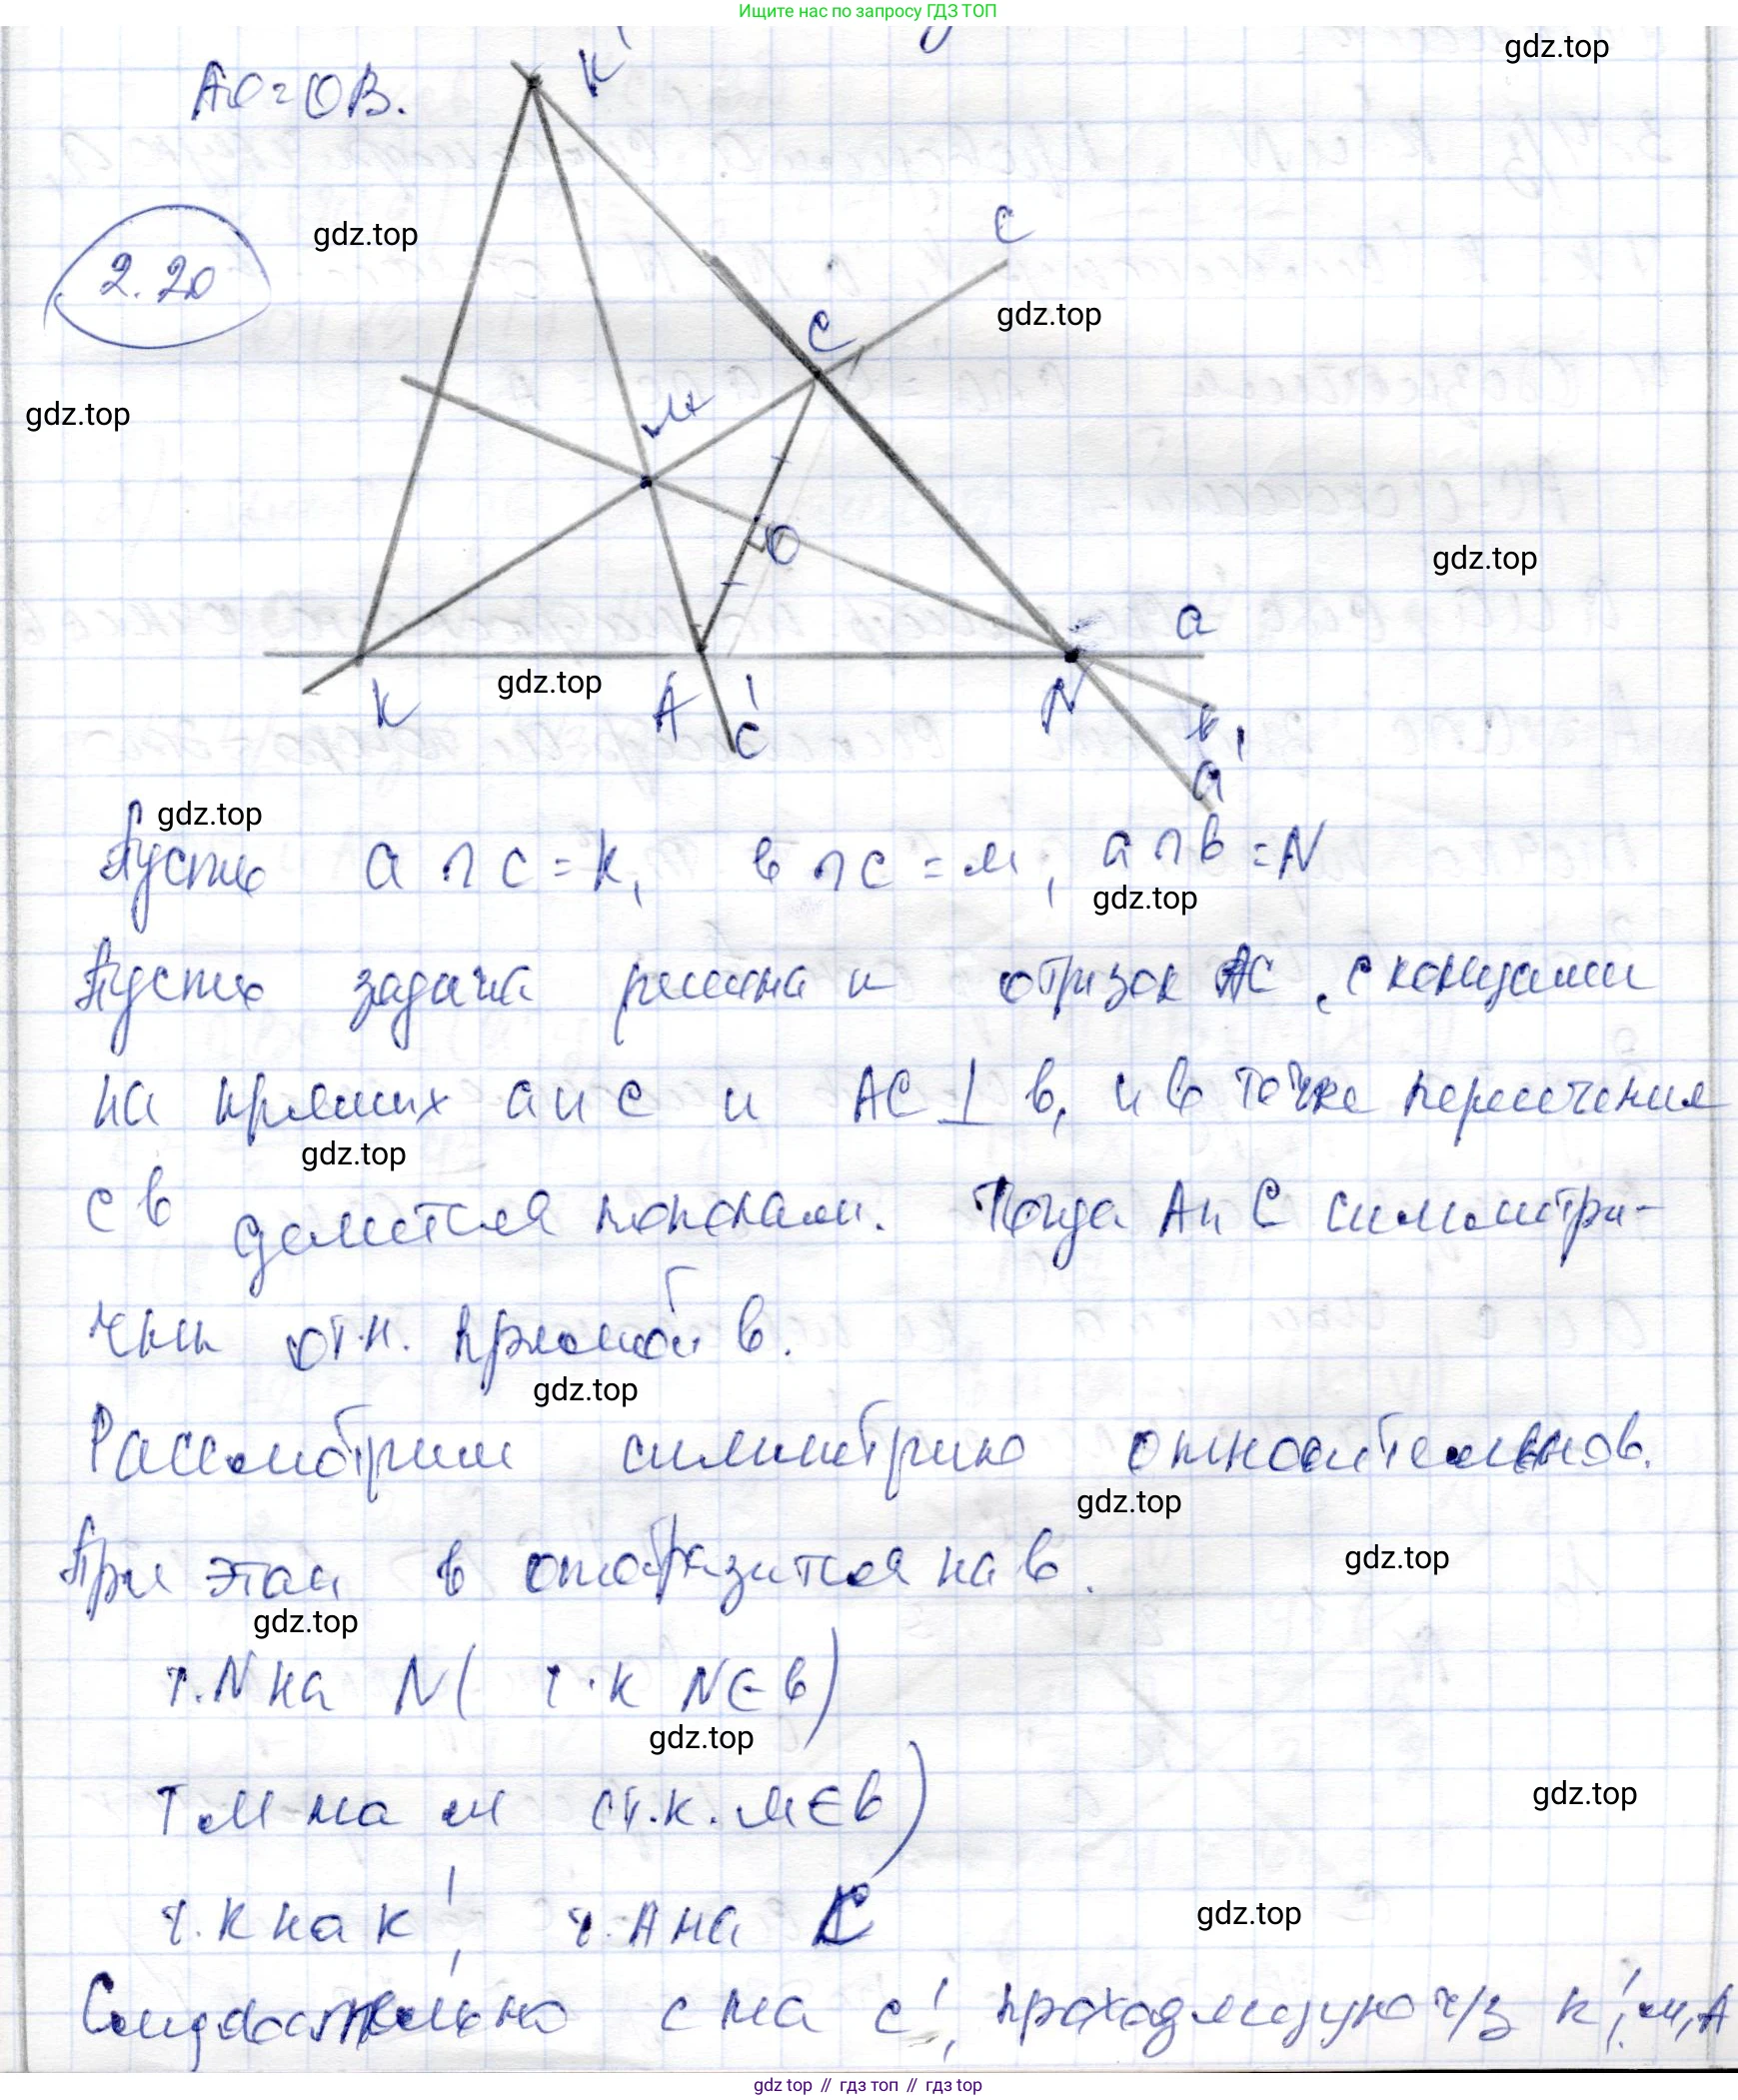 Ищите нас по запросу ГДЗ ТОП
gdz.top
AO=OB.
K'
2.20
gdz.top
c
gdz.top
C
gdz.top
M
O
gdz.top
a
gdz.top
K
A
c'
N
b
a'
gdz.top
Пусть a ∩ c = K, b ∩ c = M, a ∩ b = N
gdz.top
Пусть задача решена и отрезок AC с концами
на прямых a и c и AC ⊥ b, и в точке пересечения
gdz.top
с b делится пополам. Тогда A и C симметри-
чны отн. прямой b.
gdz.top
Рассмотрим симметрию относительно b.
gdz.top
При этом b отобразится на b.
gdz.top
gdz.top
т. N на N (т.к N ∈ b)
gdz.top
т M на M (т.к. M ∈ b)
gdz.top
т. K на K', т. A на C
gdz.top
Следовательно c на c', проходящую ч/з K', M, A
gdz top // гдз топ // гдз top